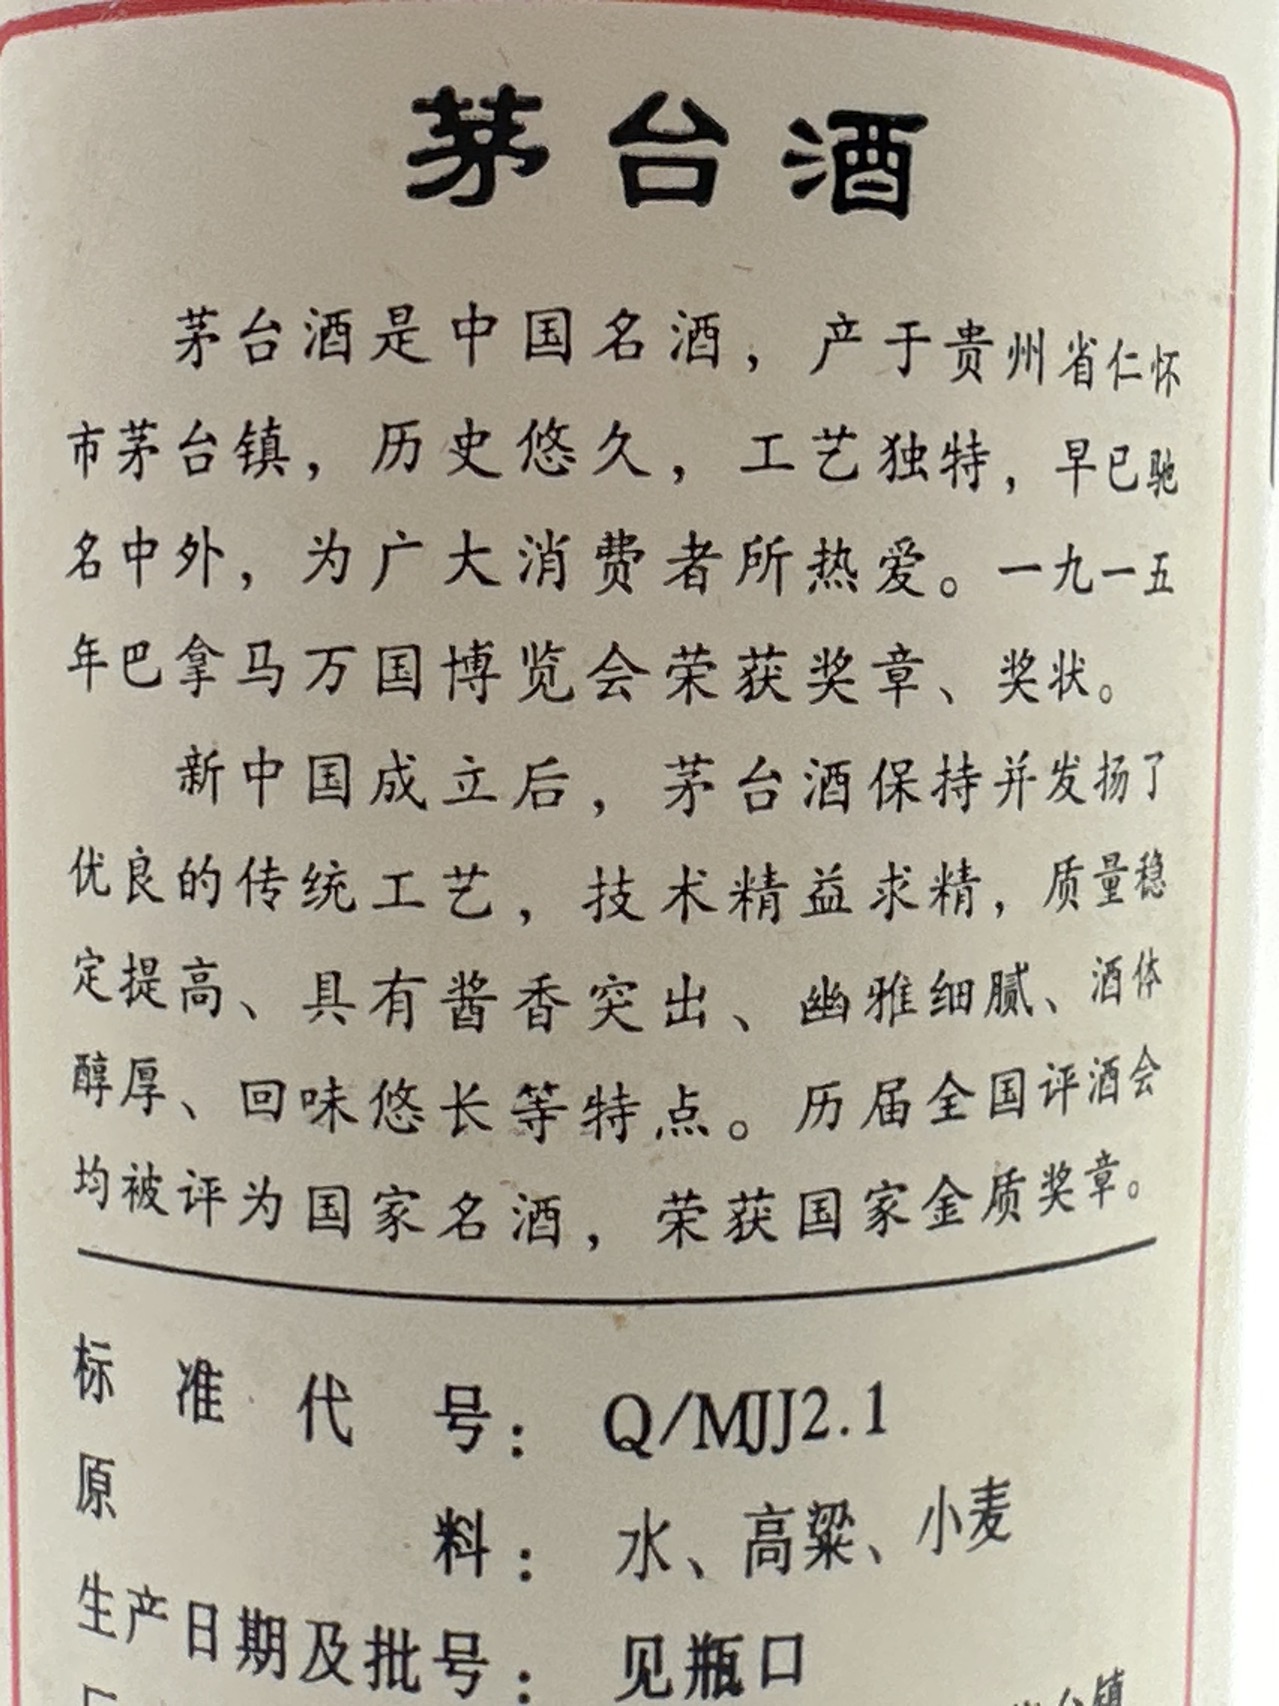 茅台酒
茅台酒是中国名酒，产于贵州省仁怀
市茅台镇，历史悠久，工艺独特，早已驰
名中外，为广大消费者所热爱。一九一五
年巴拿马万国博览会荣获奖章、奖状。
新中国成立后，茅台酒保持并发扬了
优良的传统工艺，技术精益求精，质量稳
定提高、具有酱香突出、幽雅细腻、酒体
醇厚、回味悠长等特点。历届全国评酒会
均被评为国家名酒，荣获国家金质奖章。
标准代号：Q/MJJ2.1
原料：水、高粱、小麦
生产日期及批号：见瓶口